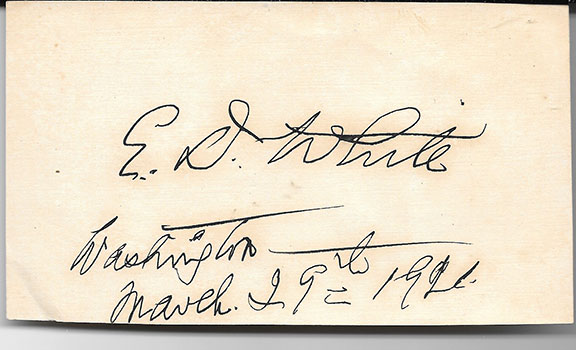 E. D. White
Washington
March. 29th 1921.